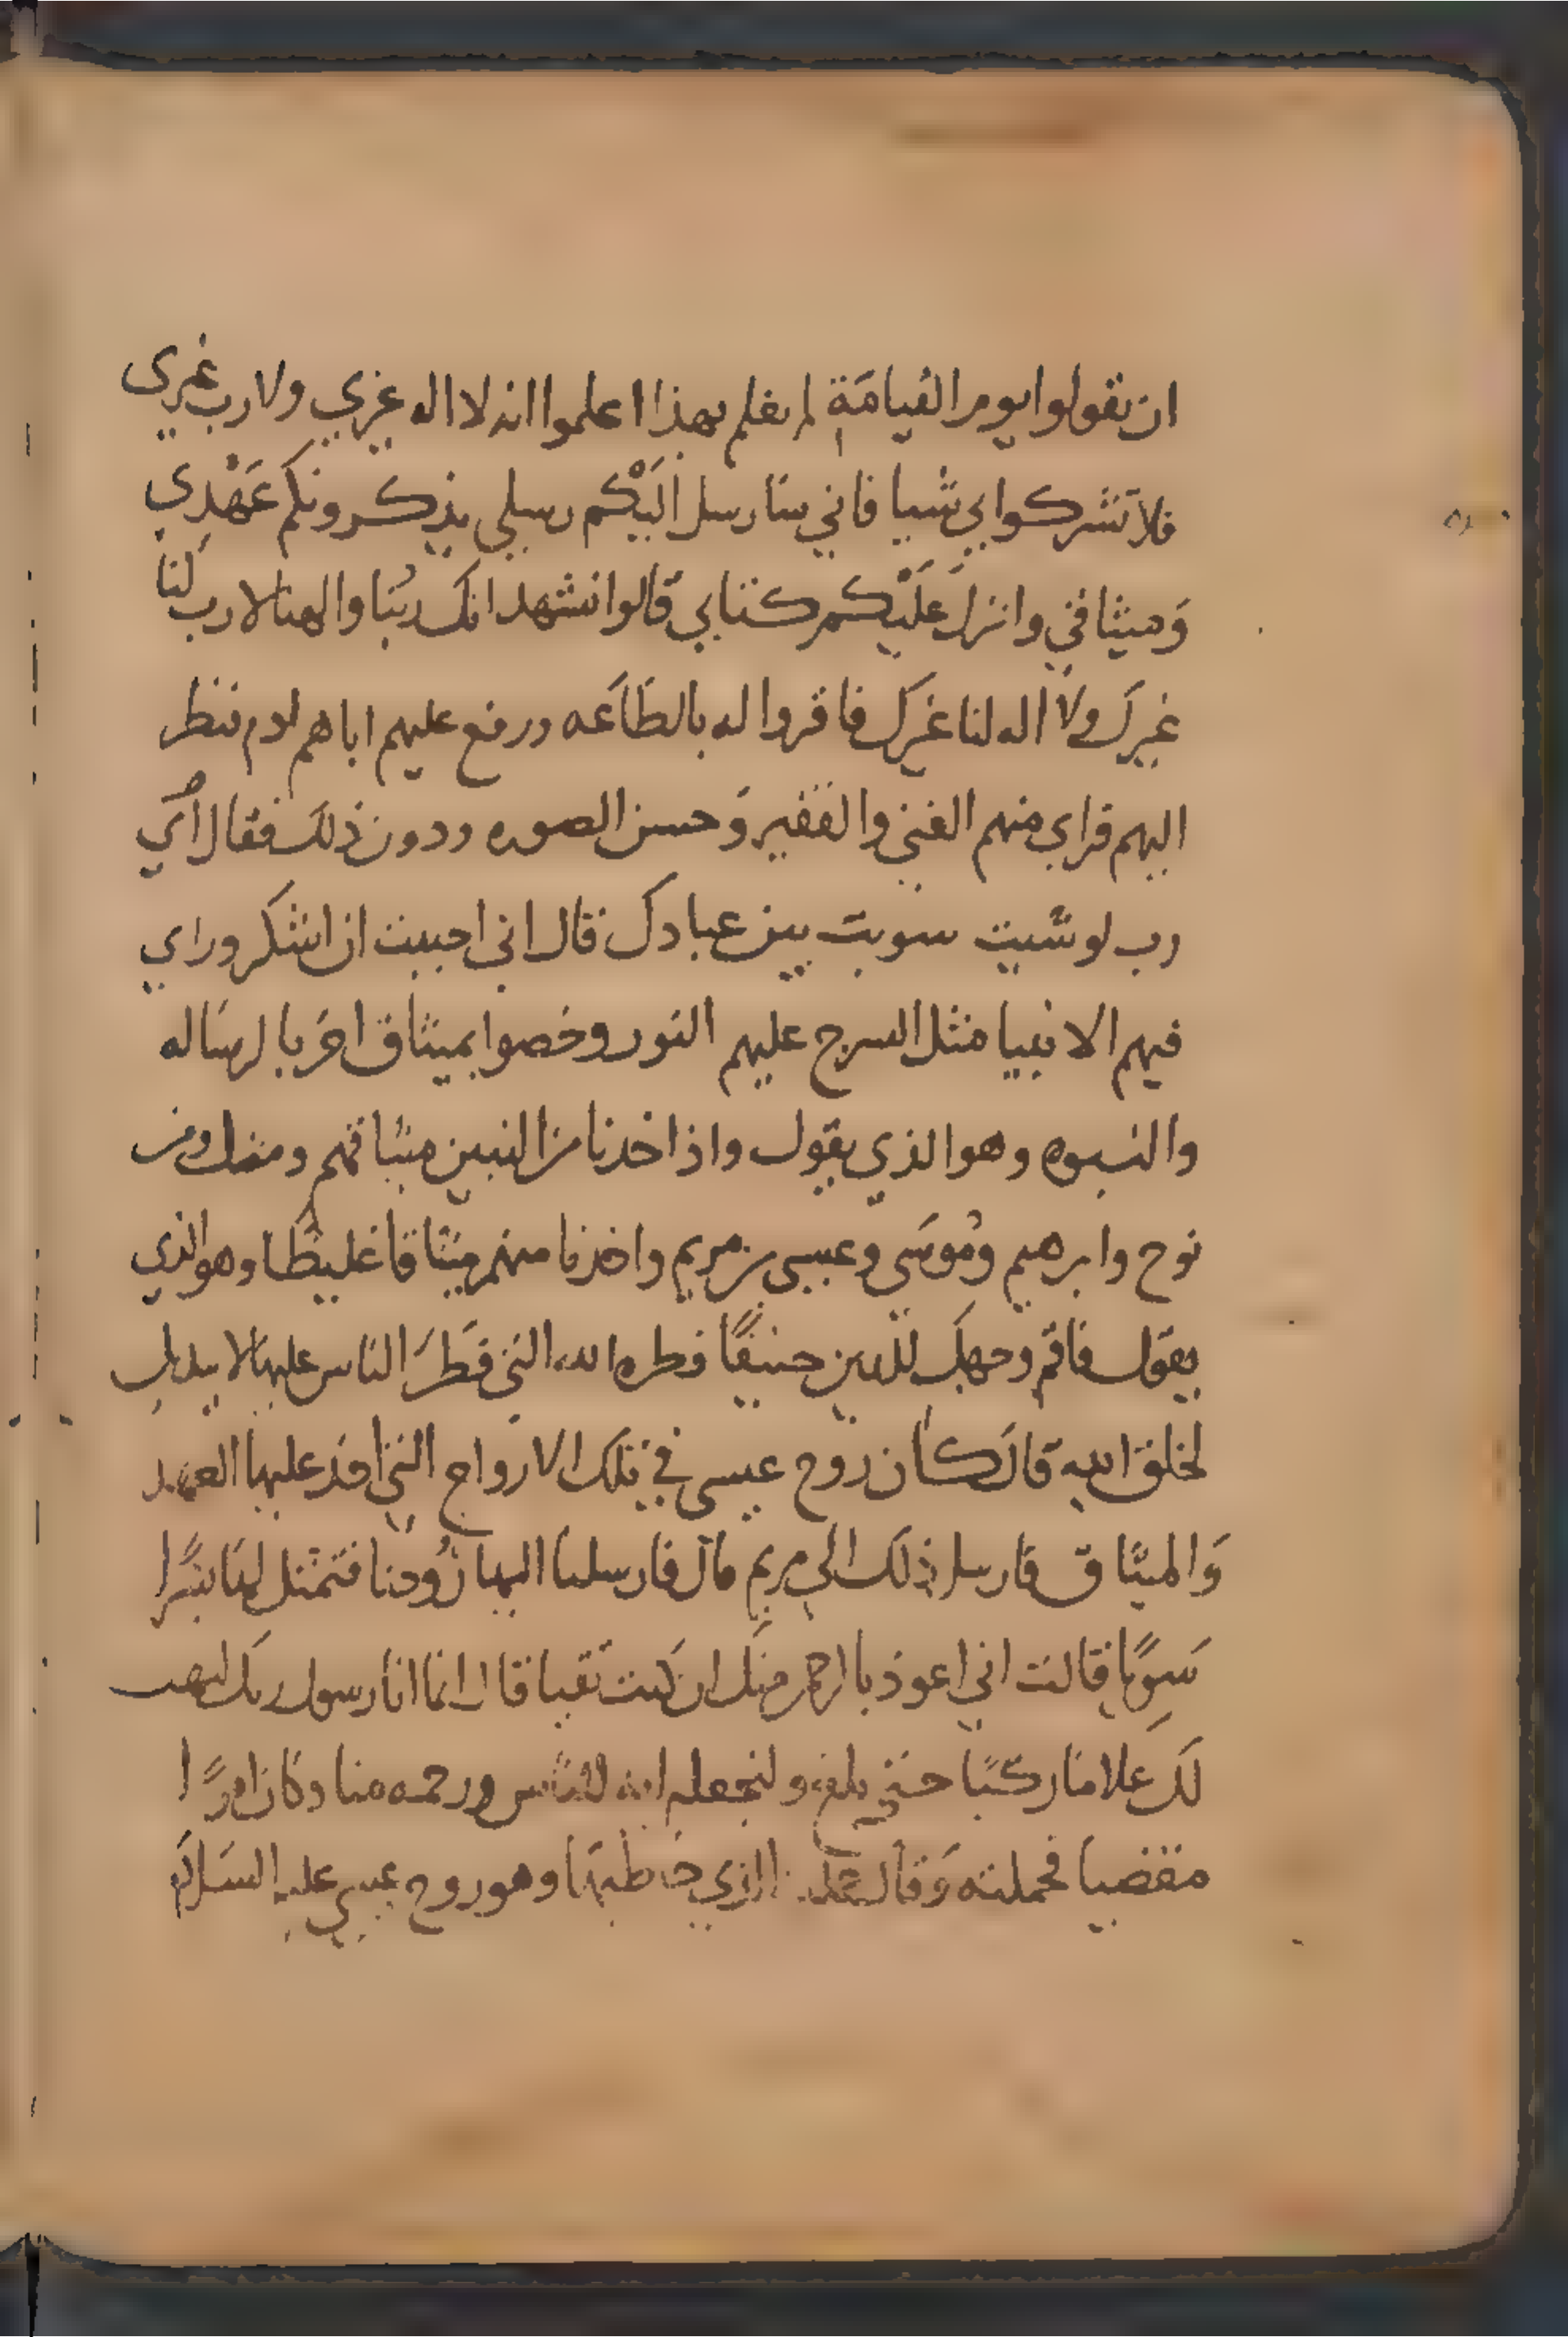 ان تقولوا يوم القيامَة لم نعلم بهذا اعلموا انه لا اله غيري ولا رب غيري
فلا تشركوا بي شيا فاني سارسل اليْكم رسلي يذكرونكم عَهْدي
وَميثاقي وانزل عَليْكم كتابي قالوا نشهد انك ربُنا والهنا لا رب لنا
غيرك ولا اله لنا غيرك فاقروا له بالطَاعَه ورفع عليهم اباهم ادم فنظر
اليهم فراي منهم الغني والفقير وَحسن الصوره ودون ذلك فقال أي
رب لو شيت سويت بين عبادك قال اني احببت ان اشكر وراي
فيهم الانبيا مثل السرج عليهم النور وخصوا بميثاق اخر بالرساله
والنبوه وهو الذي يقول واذ اخدنا من النبين ميثاقهم ومنك ومن
نوح وابرهيم ومُوسَي وعيسى بن مريم واخذنا منهم ميثاقا غليظا وهو الذي
يقول فاقم وجهك للدين حنيفًا فطره الله التي فَطَرَ الناس عليها لا تبديل
لخلق الله قال كان روح عيسى في تلك الارواح التي اخذ عليها العهد
وَالميثاق فارسل ذلك الي مريم قال فارسلنا اليها رُوحنا فتمثل لها بشرًا
سَويًا قالت اني اعوذ بالرحمن منك ان كنت تقيا قال انما انا رسول ربك ليهب
لك غلاما زكيًا حتي بلغ ولنجعله ايه للناس ورحمه منا وكان امرًا
مقضيا فحملته وَقال الذي خاطبها وهو روح عيسي عليه السَلام